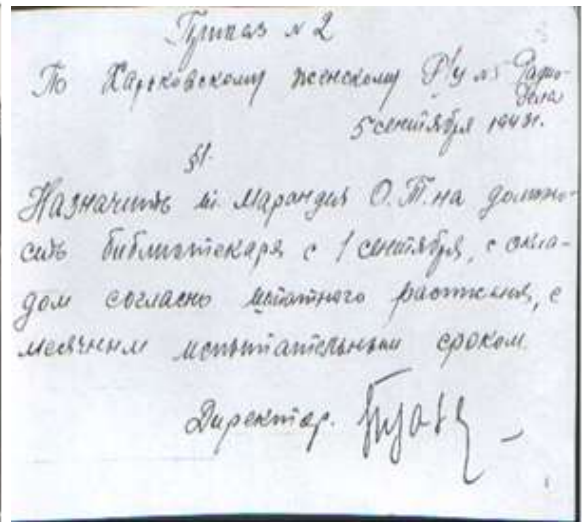 Приказ № 2
По Харьковскому женскому Р/у № 5 Радио-
дела
5 сентября 1943г.
§1.
Назначить т. Марандия О.Т. на должно-
сть библиотекаря с 1 сентября, с окла-
дом согласно штатного расписания, с
месячным испытательным сроком.
Директор.